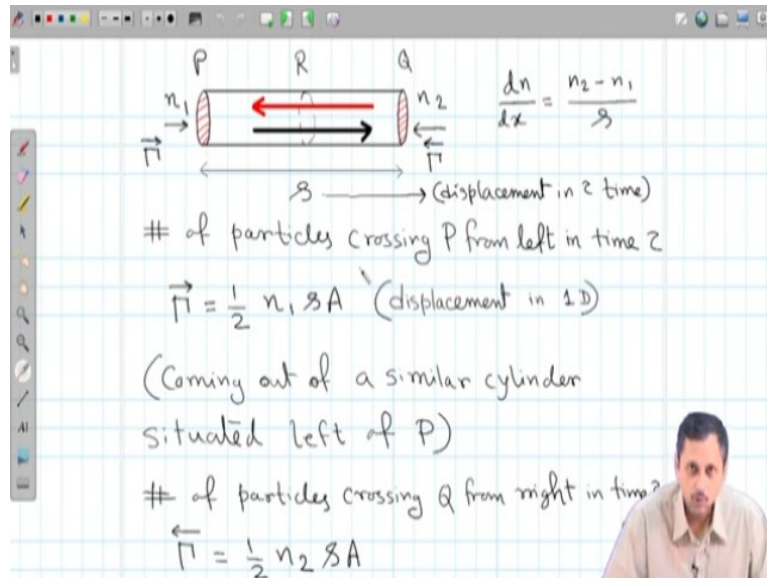 P R Q
n₁ n₂ dn/dx = (n₂ - n₁)/s
→Γ ←Γ
s → (displacement in τ time)
# of particles crossing P from left in time τ
→Γ = 1/2 n₁ s A (displacement in 1D)
(Coming out of a similar cylinder
situated left of P)
# of particles crossing Q from right in time τ
←Γ = 1/2 n₂ s A
AI